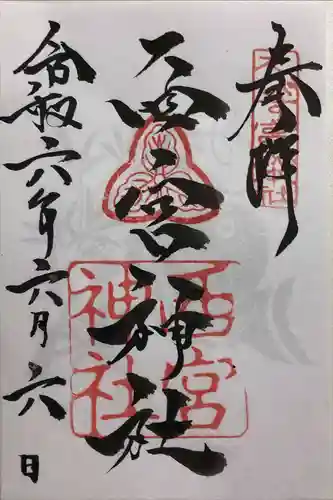 奉拝
西宮神社
西宮神社
令和六年六月六日